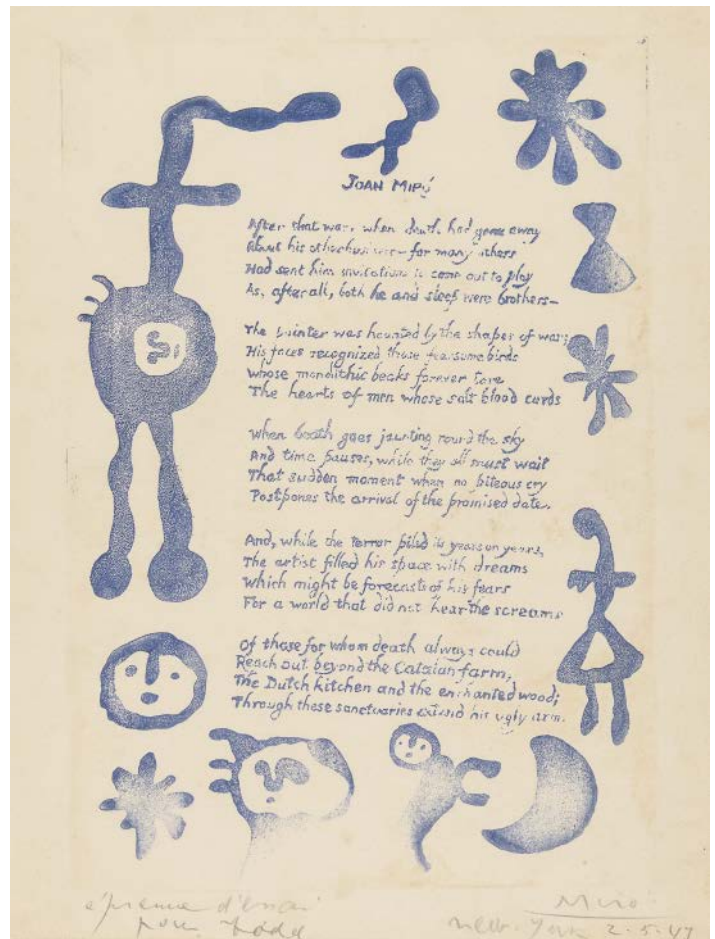 JOAN MIRÓ
After that war, when death had gone away
About his other business — for many others
Had sent him invitations to come out to play
As, after all, both he and sleep were brothers —
The painter was haunted by the shapes of war;
His faces recognized those fearsome birds
Whose monolithic beaks forever tore
The hearts of men whose salt blood curds
When death goes jaunting round the sky
And time pauses, while they all must wait
That sudden moment when no piteous cry
Postpones the arrival of the promised date.
And, while the terror piled its years on years,
The artist filled his space with dreams
Which might be forecasts of his fears
For a world that did not hear the screams
Of those for whom death always could
Reach out beyond the Catalan farm,
The Dutch kitchen and the enchanted wood;
Through these sanctuaries extend his ugly arm.
épreuve d'essai
pour Todd
Miró
New-York 2.5.47